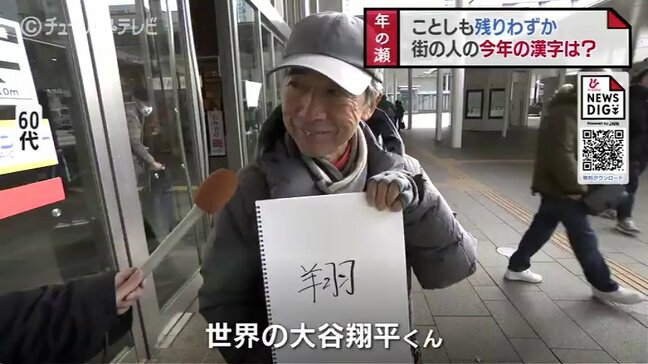 チューリップテレビ
年の瀬
ことしも残りわずか
街の人の今年の漢字は?
NEWS
DIG
Powered by JNN
無料ダウンロード
60代
翔
世界の大谷翔平くん